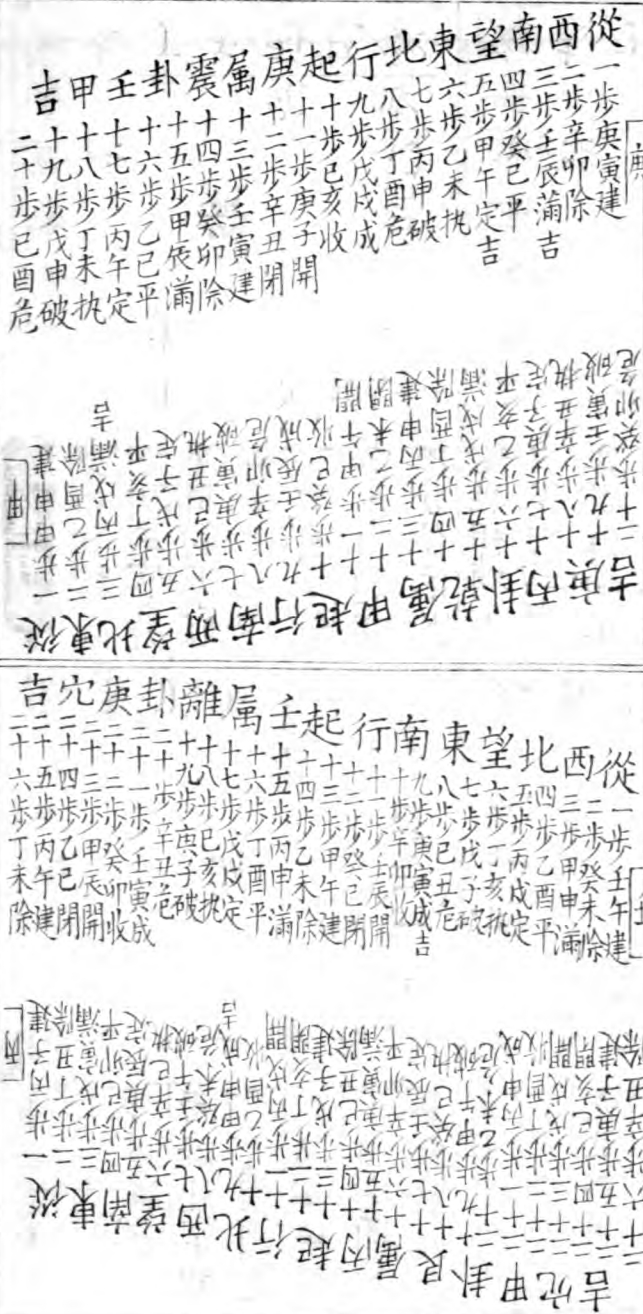 從西南望東北行起庚属震卦壬甲吉
一步庚寅建
二步辛卯除
三步壬辰蒲吉
四步癸巳平
五步甲午定吉
六步乙未执
七步丙申破
八步丁酉危
九步戊戌成
十步已亥收
十一步庚子開
十二步辛丑閉
十三步壬寅建
十四步癸卯除
十五步甲辰蒲
十六步乙巳平
十七步丙午定
十八步丁未执
十九步戊申破
二十步已酉危
甲
從東北望西南行起甲属乾卦丙庚吉
一步甲申建
二步乙酉除
三步丙戌蒲吉
四步丁亥平
五步戊子定
六步己丑执
七步庚寅破
八步辛卯危
九步壬辰成
十步癸巳收
十一步甲午開
十二步乙未閉
十三步丙申建
十四步丁酉除
十五步戊戌蒲
十六步乙亥平
十七步庚子定
十八步辛丑执
十九步壬寅破
二十步癸卯危
從西北望東南行起壬属離卦庚穴吉
一步壬午建
二步癸未除
三步甲申蒲
四步乙酉平
五步丙戌定
六步丁亥执
七步戊子破
八步已丑危
九步庚寅成吉
十步辛卯收
十一步壬辰開
十二步癸巳閉
十三步甲午建
十四步乙未除
十五步丙申蒲
十六步丁酉平
十七步戊戌定
十八步已亥执
十九步庚子破
二十步辛丑危
二十一步壬寅成
二十二步癸卯收
二十三步甲辰開
二十四步乙巳閉
二十五步丙午建
二十六步丁未除
丙
從東南望西北行起丙属艮卦甲穴吉
一步丙子建
二步丁丑除
三步戊寅蒲
四步己卯平
五步庚辰定
六步辛巳执
七步壬午破
八步癸未危
九步甲申成吉
十步乙酉收
十一步丙戌開
十二步丁亥閉
十三步戊子建
十四步己丑除
十五步庚寅蒲
十六步辛卯平
十七步壬辰定
十八步癸巳执
十九步甲午破
二十步乙未危
二十一步丙申成
二十二步丁酉收
二十三步戊戌開
二十四步己亥閉
二十五步庚子建
二十六步辛丑除